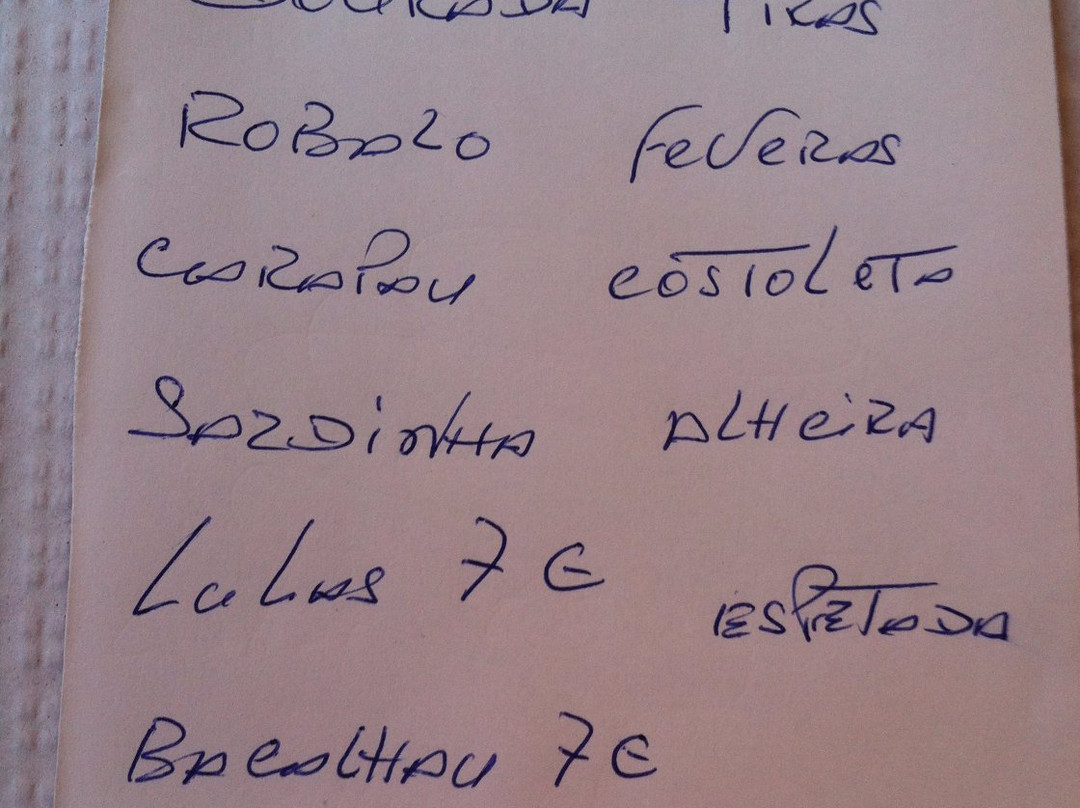 DOURADA TIRAS
ROBALO FEVERAS
CARAPAU COSTOLETA
SARDINHA ALHEIRA
LULAS 7 €
ESPETADA
BACALHAU 7 €